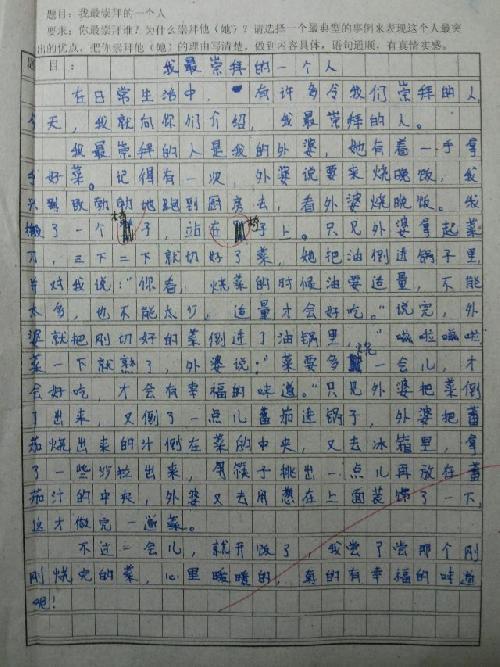 题目：我最崇拜的一个人
要求：你最崇拜谁？为什么崇拜他（她）？请选择一个最典型的事例来表现这个人最突
出的优点，把你崇拜他（她）的理由写清楚，做到内容具体，语句通顺，有真情实感。
题目：我最崇拜的一个人
在日常生活中，有许多令我们崇拜的人，
今天，我就向你们介绍，我最崇拜的人。
我最崇拜的人是我的外婆，她有着一手拿
手好菜。记得有一次，外婆说要来烧晚饭，我
只到 地跑到厨房去，看外婆烧晚饭。我
搬了一个椅子，站在椅子上。只见外婆拿起菜
刀，三下二下就切好了菜，她把油倒进锅子里，
并对我说：“你看，烧菜的时候油要适量，不能
太多，也不能太少，适量才会好吃。”说完，外
婆就把刚切好的菜倒进了油锅里，“嗞啦嗞啦
菜一下就熟了，外婆说：“菜要多烧一会儿，才
会好吃，才会有幸福的味道。”只见外婆把菜倒
了出来，又倒了一点儿蕃茄进锅子，外婆把蕃
茄烧出来的汁倒在菜的中央，又去冰箱里，拿
了一些沙拉出来，用筷子挑出一点儿再放在蕃
茄汁的中央，外婆又去用葱在上面装饰了一下，
这才做完一道菜。
不过一会儿，就开饭了，我尝了尝那个刚
刚烧完的菜，心里暖暖的，真的有幸福的味道
呢！